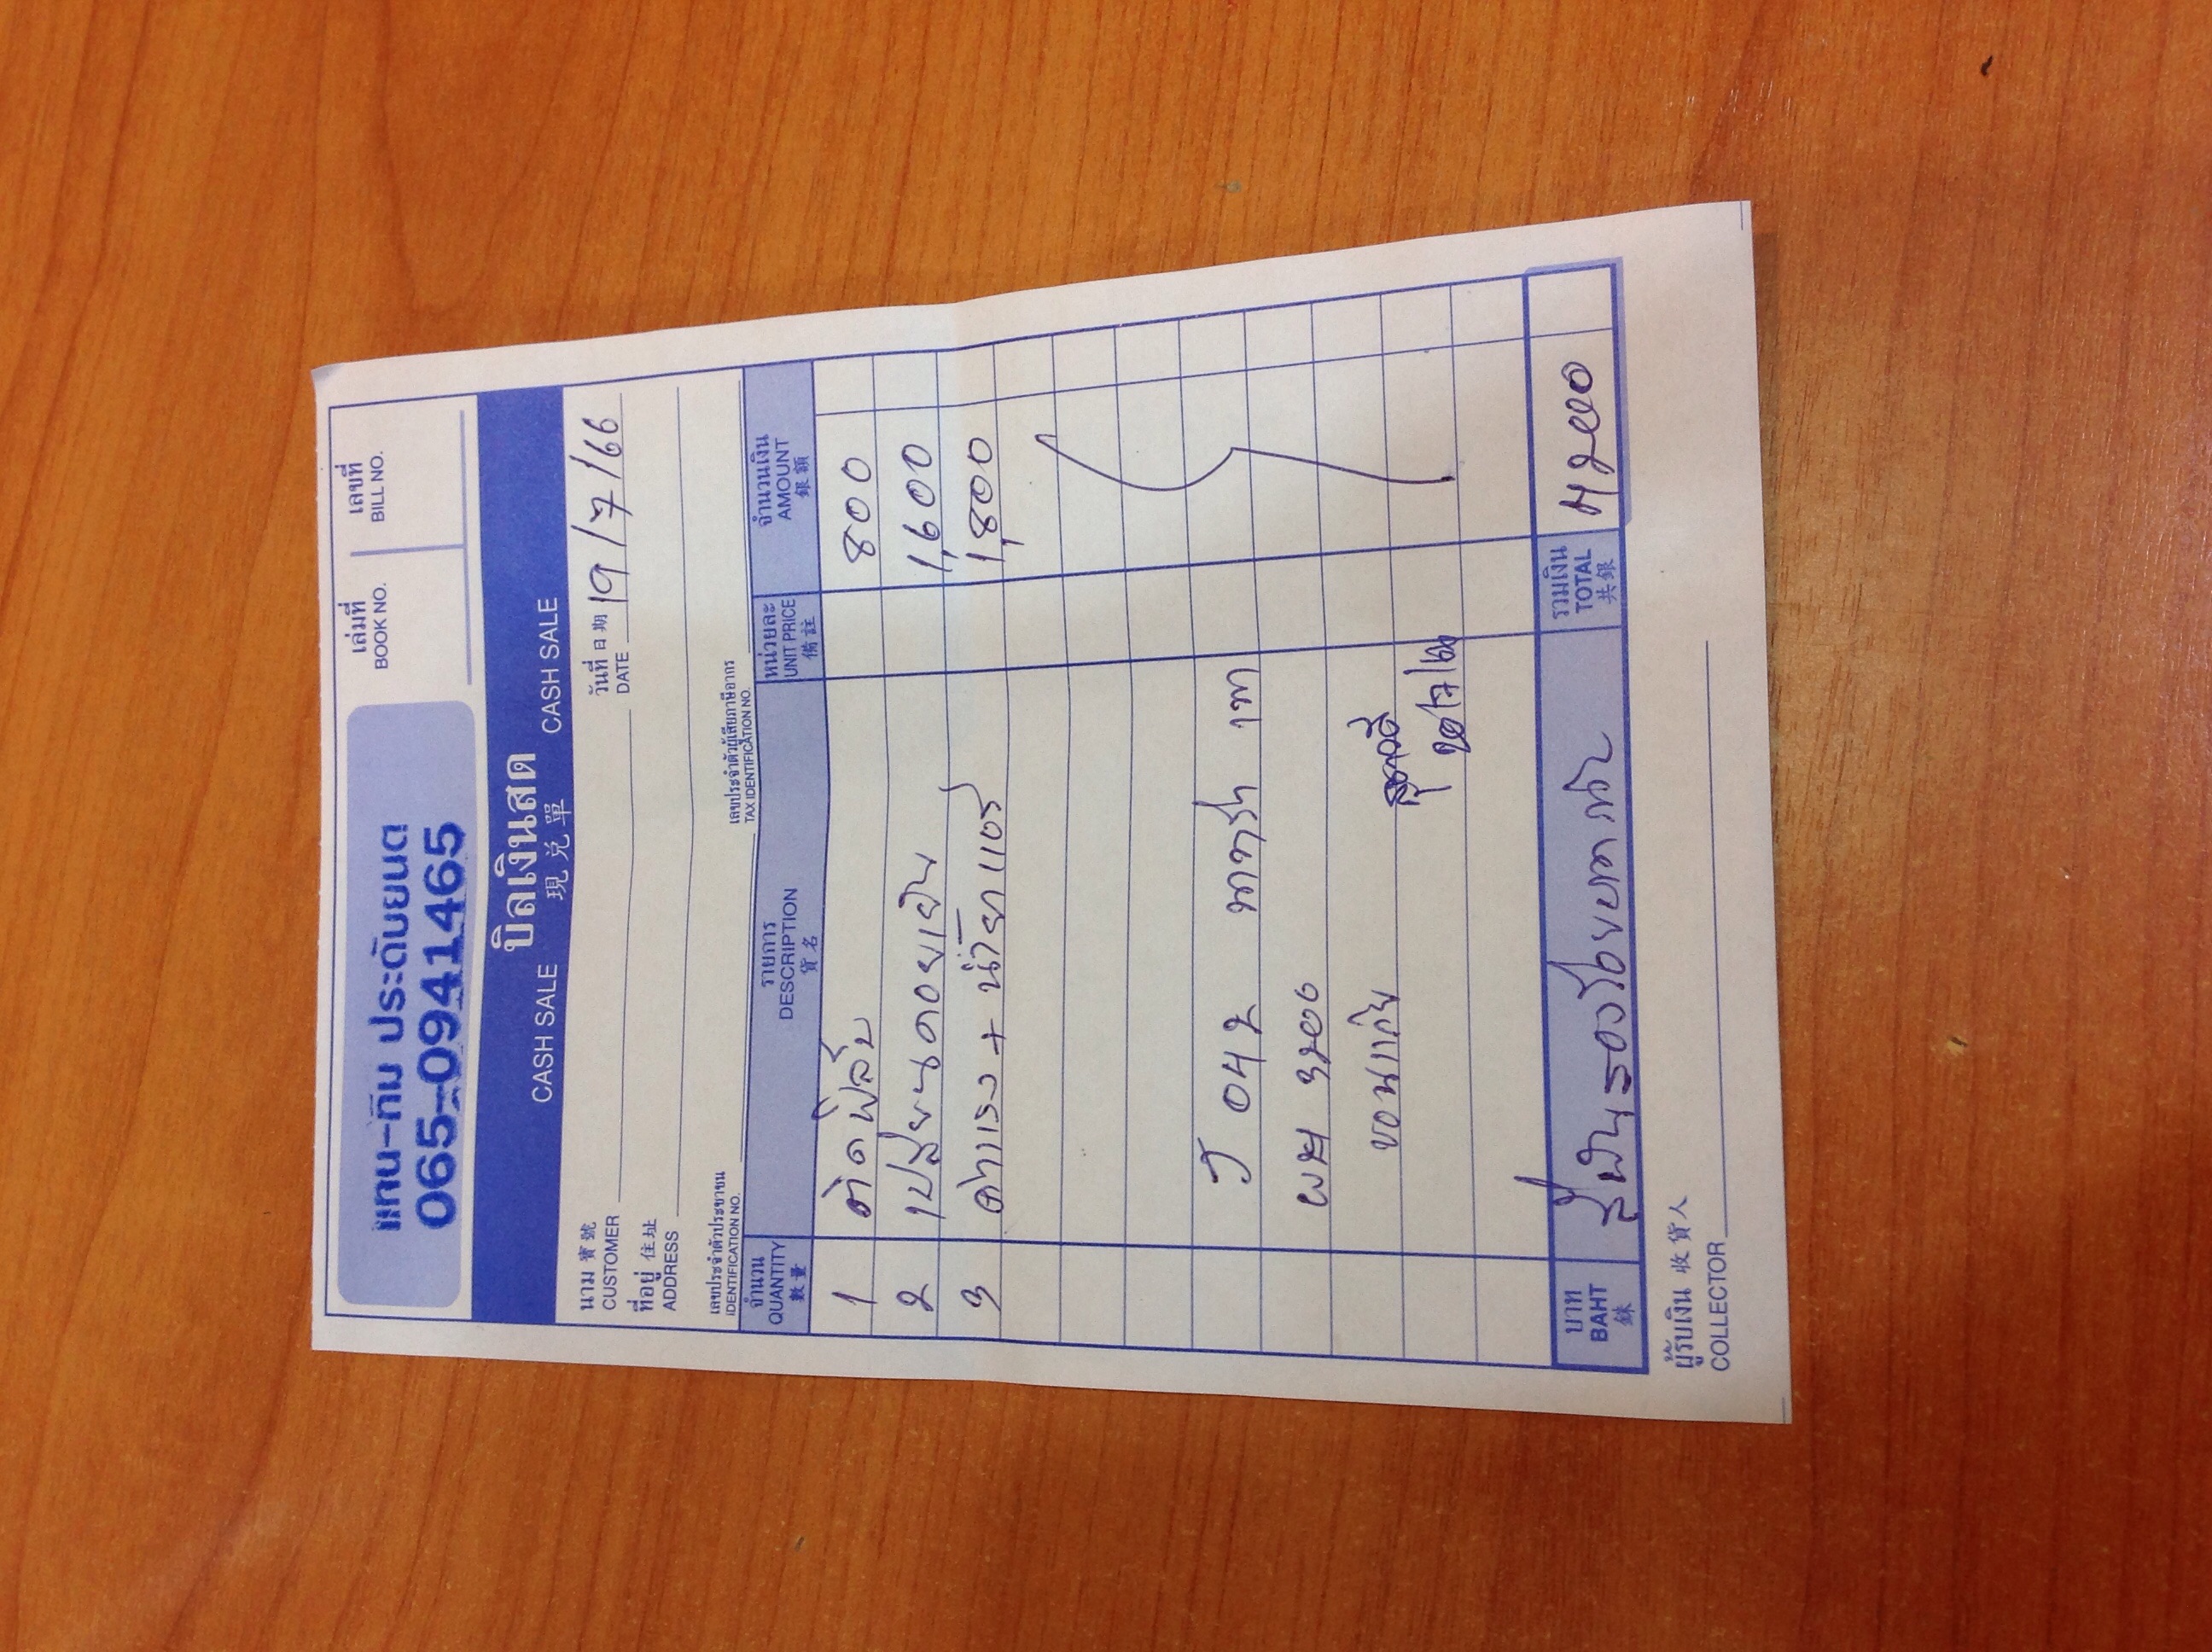 แทน-ทีม ประดับยนต์
065-0941465
เล่มที่
BOOK NO.
เลขที่
BILL NO.
บิลเงินสด
CASH SALE 現兌單 CASH SALE
นาม 寶號
CUSTOMER
วันที่ 日期
DATE 19/7/66
ที่อยู่ 住址
ADDRESS
เลขประจำตัวประชาชน
IDENTIFICATION NO.
เลขประจำตัวผู้เสียภาษีอากร
TAX IDENTIFICATION NO.
จำนวน รายการ หน่วยละ จำนวนเงิน
QUANTITY DESCRIPTION UNIT PRICE AMOUNT
數量 貨名 備註 銀額
1 ติดฟิล์ม 800
2 เปลี่ยนคอยเย็น 1,600
3 ค่าแรง + น้ำยาแอร์ 1,800
042
3206
ขอนแก่น
บาท
BAHT
銖
สี่พันสองร้อยบาทถ้วน
รวมเงิน
TOTAL
共銀
4200
ผู้รับเงิน 收貨人
COLLECTOR